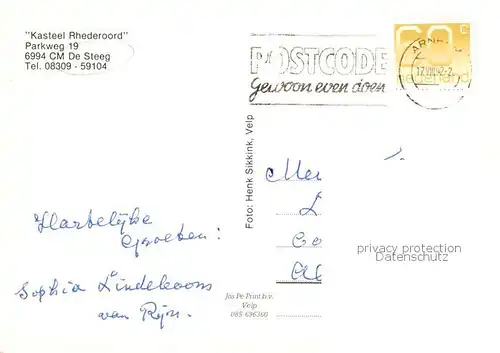 "Kasteel Rhederoord"
Parkweg 19
6994 CM De Steeg
Tel. 08309 - 59104
POSTCODE
gewoon even doen
ARNHEM
60 c
nederland
Foto: Henk Sikkink, Velp
Hartelijke
Groeten:
Sophia Lindeboom
van Rijn.
Jos Pé Print b.v.
Velp
085-636360
privacy protection
Datenschutz